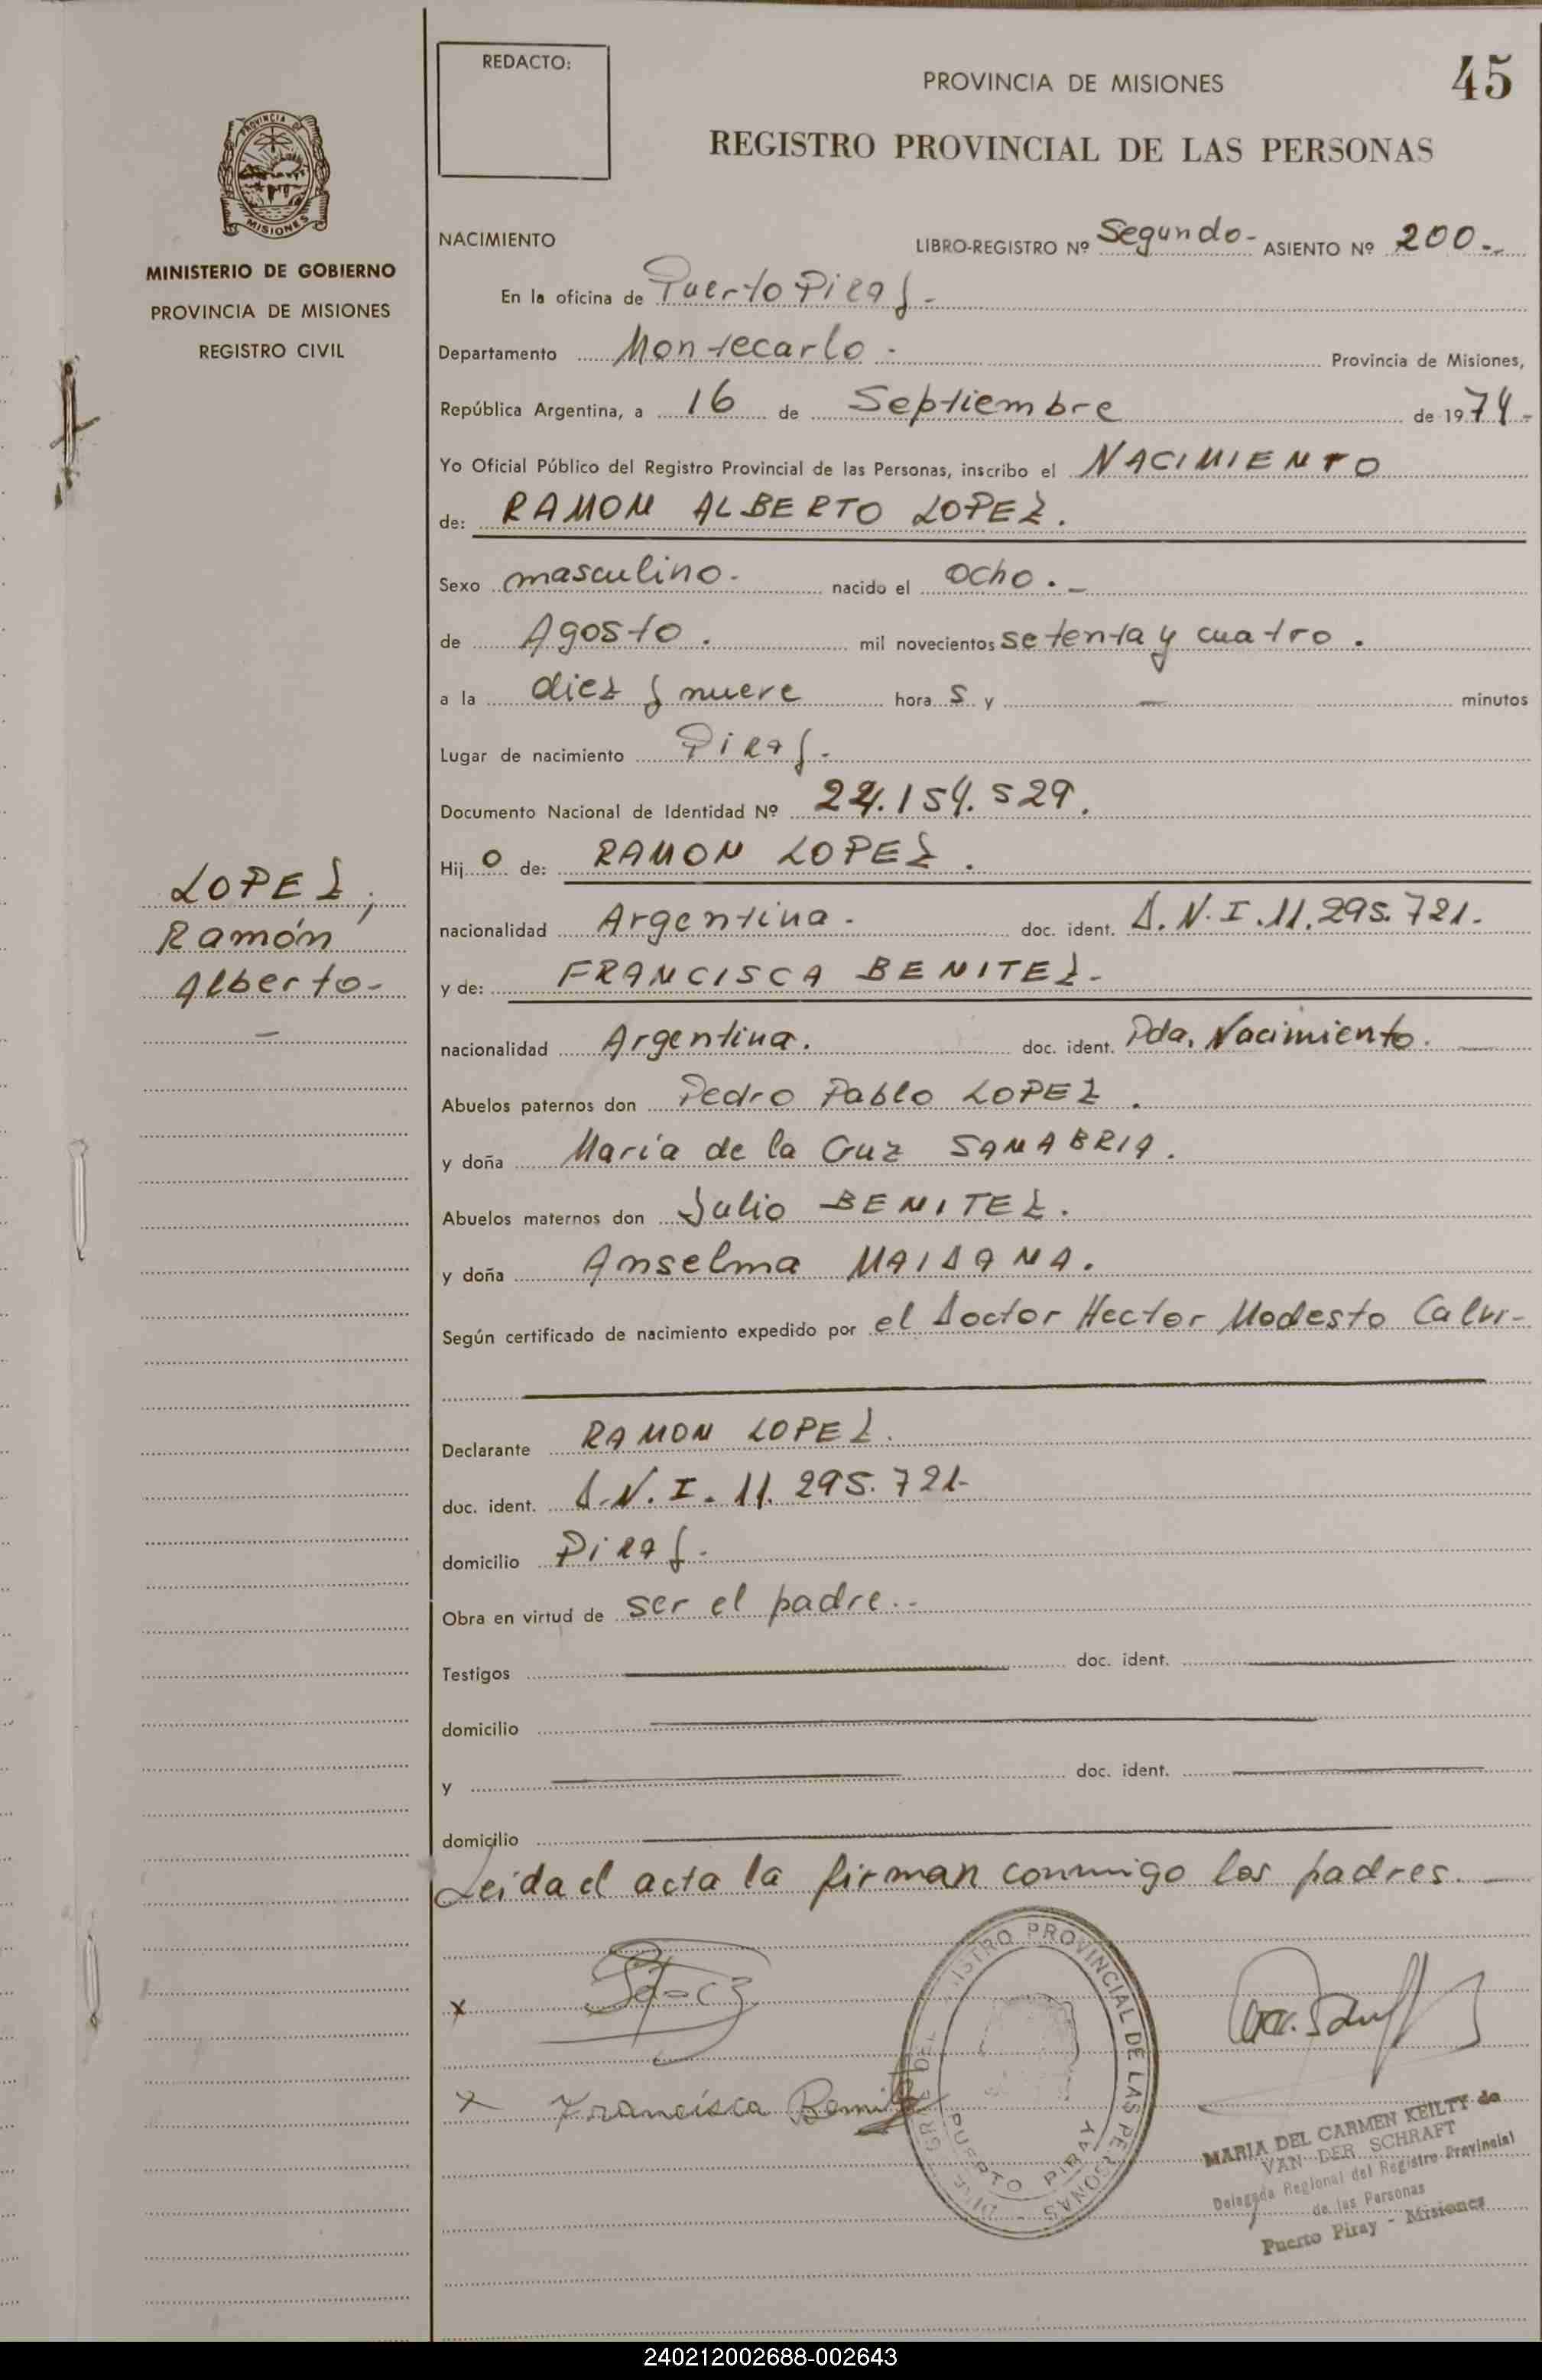 REDACTO:
PROVINCIA DE MISIONES
45
REGISTRO PROVINCIAL DE LAS PERSONAS
PROVINCIA DE
MISIONES
MINISTERIO DE GOBIERNO
PROVINCIA DE MISIONES
REGISTRO CIVIL
NACIMIENTO
LIBRO-REGISTRO Nº Segundo- ASIENTO Nº 200.-
En la oficina de Puerto Piray.-
Departamento Montecarlo.- Provincia de Misiones,
República Argentina, a 16 de Septiembre de 1974.-
Yo Oficial Público del Registro Provincial de las Personas, inscribo el NACIMIENTO
de: RAMON ALBERTO LOPEZ.
Sexo masculino.- nacido el ocho.-
de Agosto. mil novecientos setenta y cuatro.
a la diez y nueve horas y — minutos
Lugar de nacimiento Piray.-
Documento Nacional de Identidad Nº 24.154.529.
Hijo de: RAMON LOPEZ.
LOPEZ,
Ramón
Alberto-
—
nacionalidad Argentina.- doc. ident. D.N.I.11.295.721.-
y de: FRANCISCA BENITEZ-
nacionalidad Argentina. doc. ident. Pda. Nacimiento.—
Abuelos paternos don Pedro Pablo LOPEZ.
y doña María de la Cruz SANABRIA.
Abuelos maternos don Julio BENITEZ.
y doña Anselma MAIDANA.
Según certificado de nacimiento expedido por el Doctor Hector Modesto Calvi-
Declarante RAMON LOPEZ.
doc. ident. D.N.I. 11.295.721-
domicilio Piray.-
Obra en virtud de ser el padre.-
Testigos doc. ident.
domicilio
y doc. ident.
domicilio
Leida el acta la firman conmigo los padres.—
x
x Francisca Benitez
REGISTRO PROVINCIAL DE LAS PERSONAS
PUERTO PIRAY
MARIA DEL CARMEN KEILTY de
VAN DER SCHRAFT
Delegada Regional del Registro Provincial
de las Personas
Puerto Piray - Misiones
240212002688-002643